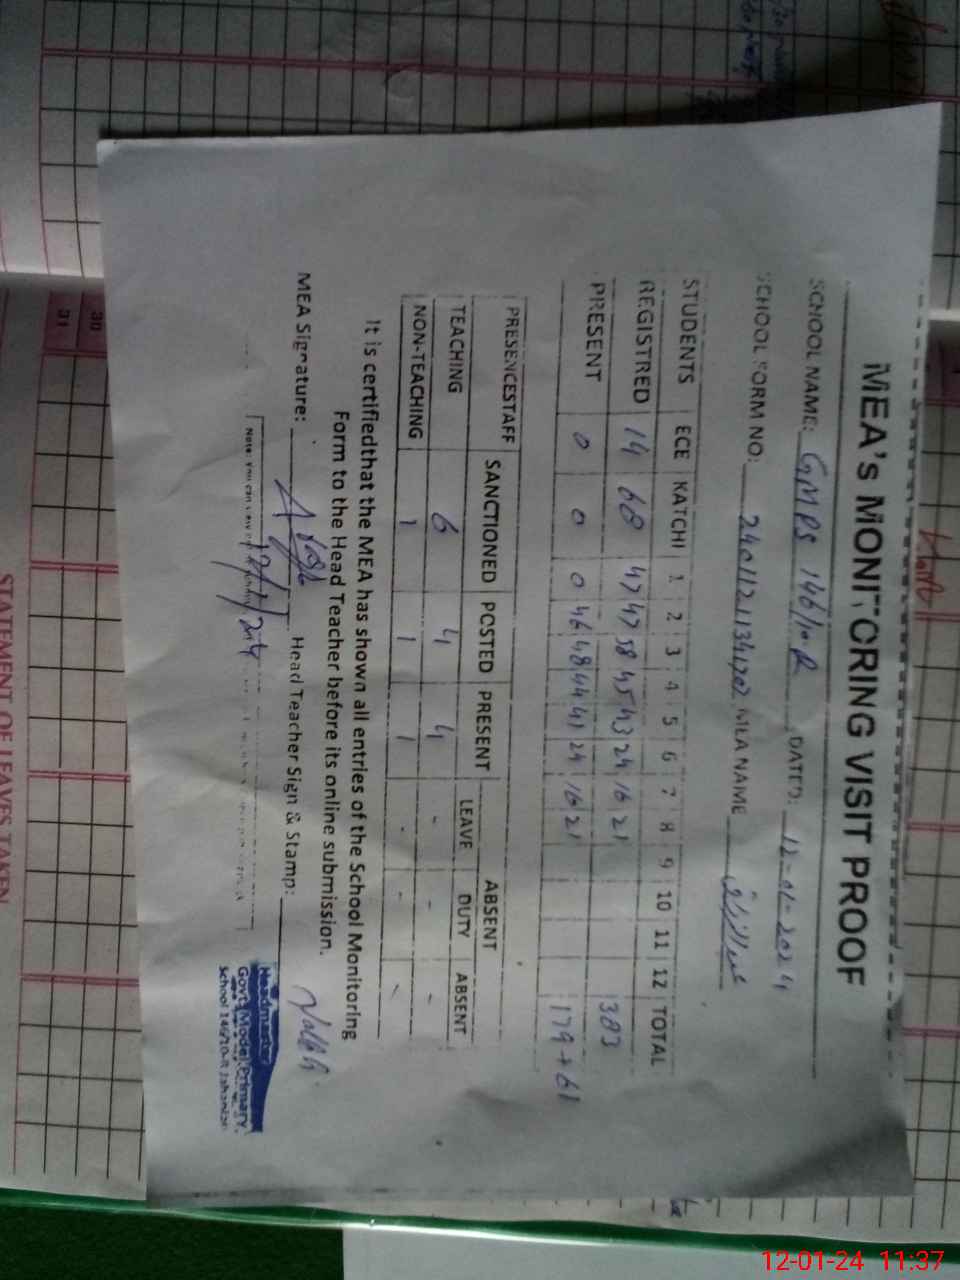 MEA's MONITORING VISIT PROOF
SCHOOL NAME: GMPS 146/10-R DATED: 12-01-2024
SCHOOL FORM NO: MEA NAME
STUDENTS ECE KATCHI 1 2 3 4 5 6 7 8 9 10 11 12 TOTAL
REGISTRED 14 68 47 47 58 45 43 24 16 21 383
PRESENT 0 0 0 46 48 44 41 24 16 21 179+61
PRESENCESTAFF SANCTIONED POSTED PRESENT ABSENT
LEAVE DUTY ABSENT
TEACHING 6 4 4 - - -
NON-TEACHING 1 1 1 - - -
It is certifiedthat the MEA has shown all entries of the School Monitoring
Form to the Head Teacher before its online submission.
MEA Signature: Head Teacher Sign & Stamp:
12/1/24
Note: You can
Headmaster
Govt: Model Primary
School 146/10-R Jahanian
30
31
STATEMENT OF LEAVES TAKEN
12-01-24 11:37